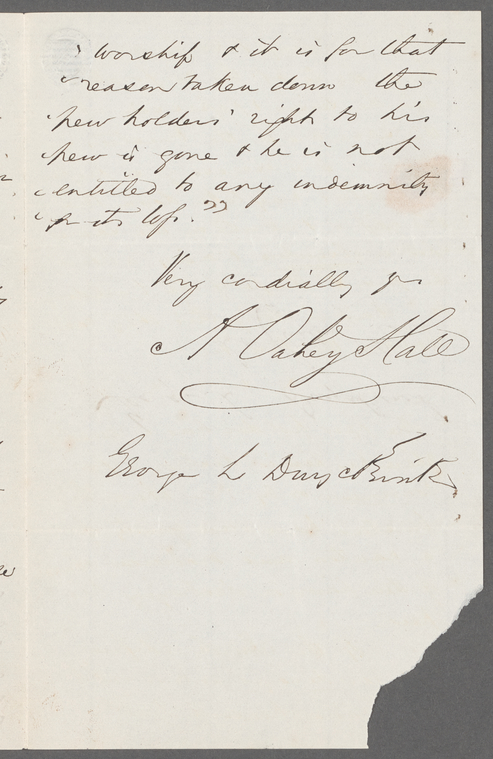 " worship & it is for that
" reason taken down the
" pew holders' right to his
" pew is gone & he is not
" entitled to any indemnity
" for its loss."
Very cordially yrs
A Oakey Hall
George L Duyckinck